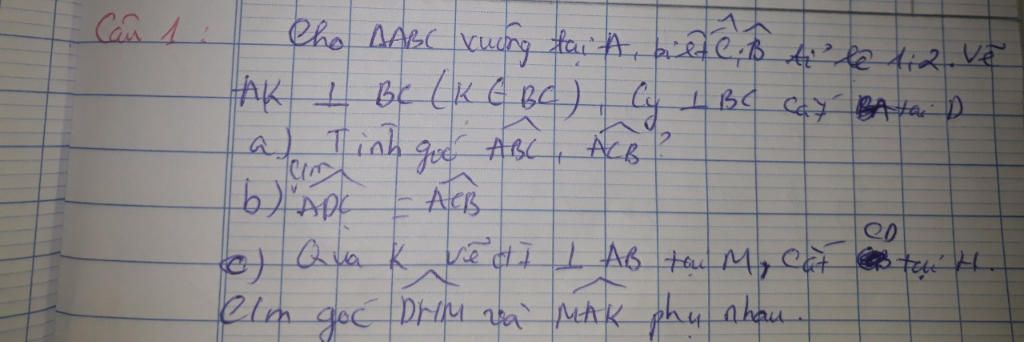 Câu 1: Cho ΔABC vuông tại A, biết Ĉ, B̂ tỉ lệ 1:2. Vẽ
AK ⊥ BC (K ∈ BC), Cy ⊥ BC cắt BA tại D
a) Tính góc ABC, ACB?
b) C/m ADC = ACB
c) Qua K vẽ đt ⊥ AB tại M, cắt CD tại H.
C/m góc DHM và MAK phụ nhau.